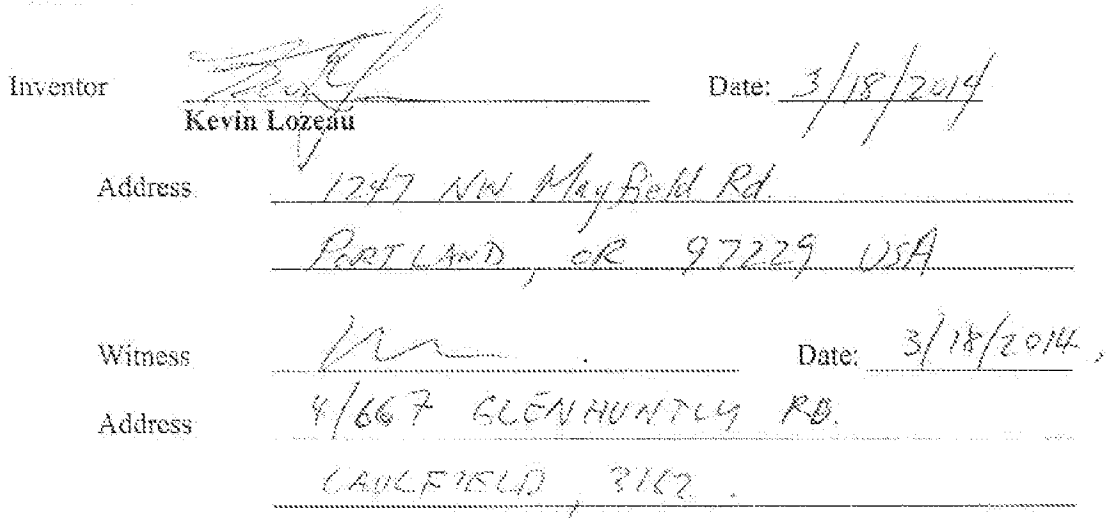 Inventor Date: 3/18/2014
Kevin Lozeau
Address 1247 NW Mayfield Rd.
PORTLAND, OR 97229 USA
Witness Date: 3/18/2014,
Address 4/667 GLENHUNTLY RD.
CAULFIELD, 3162.